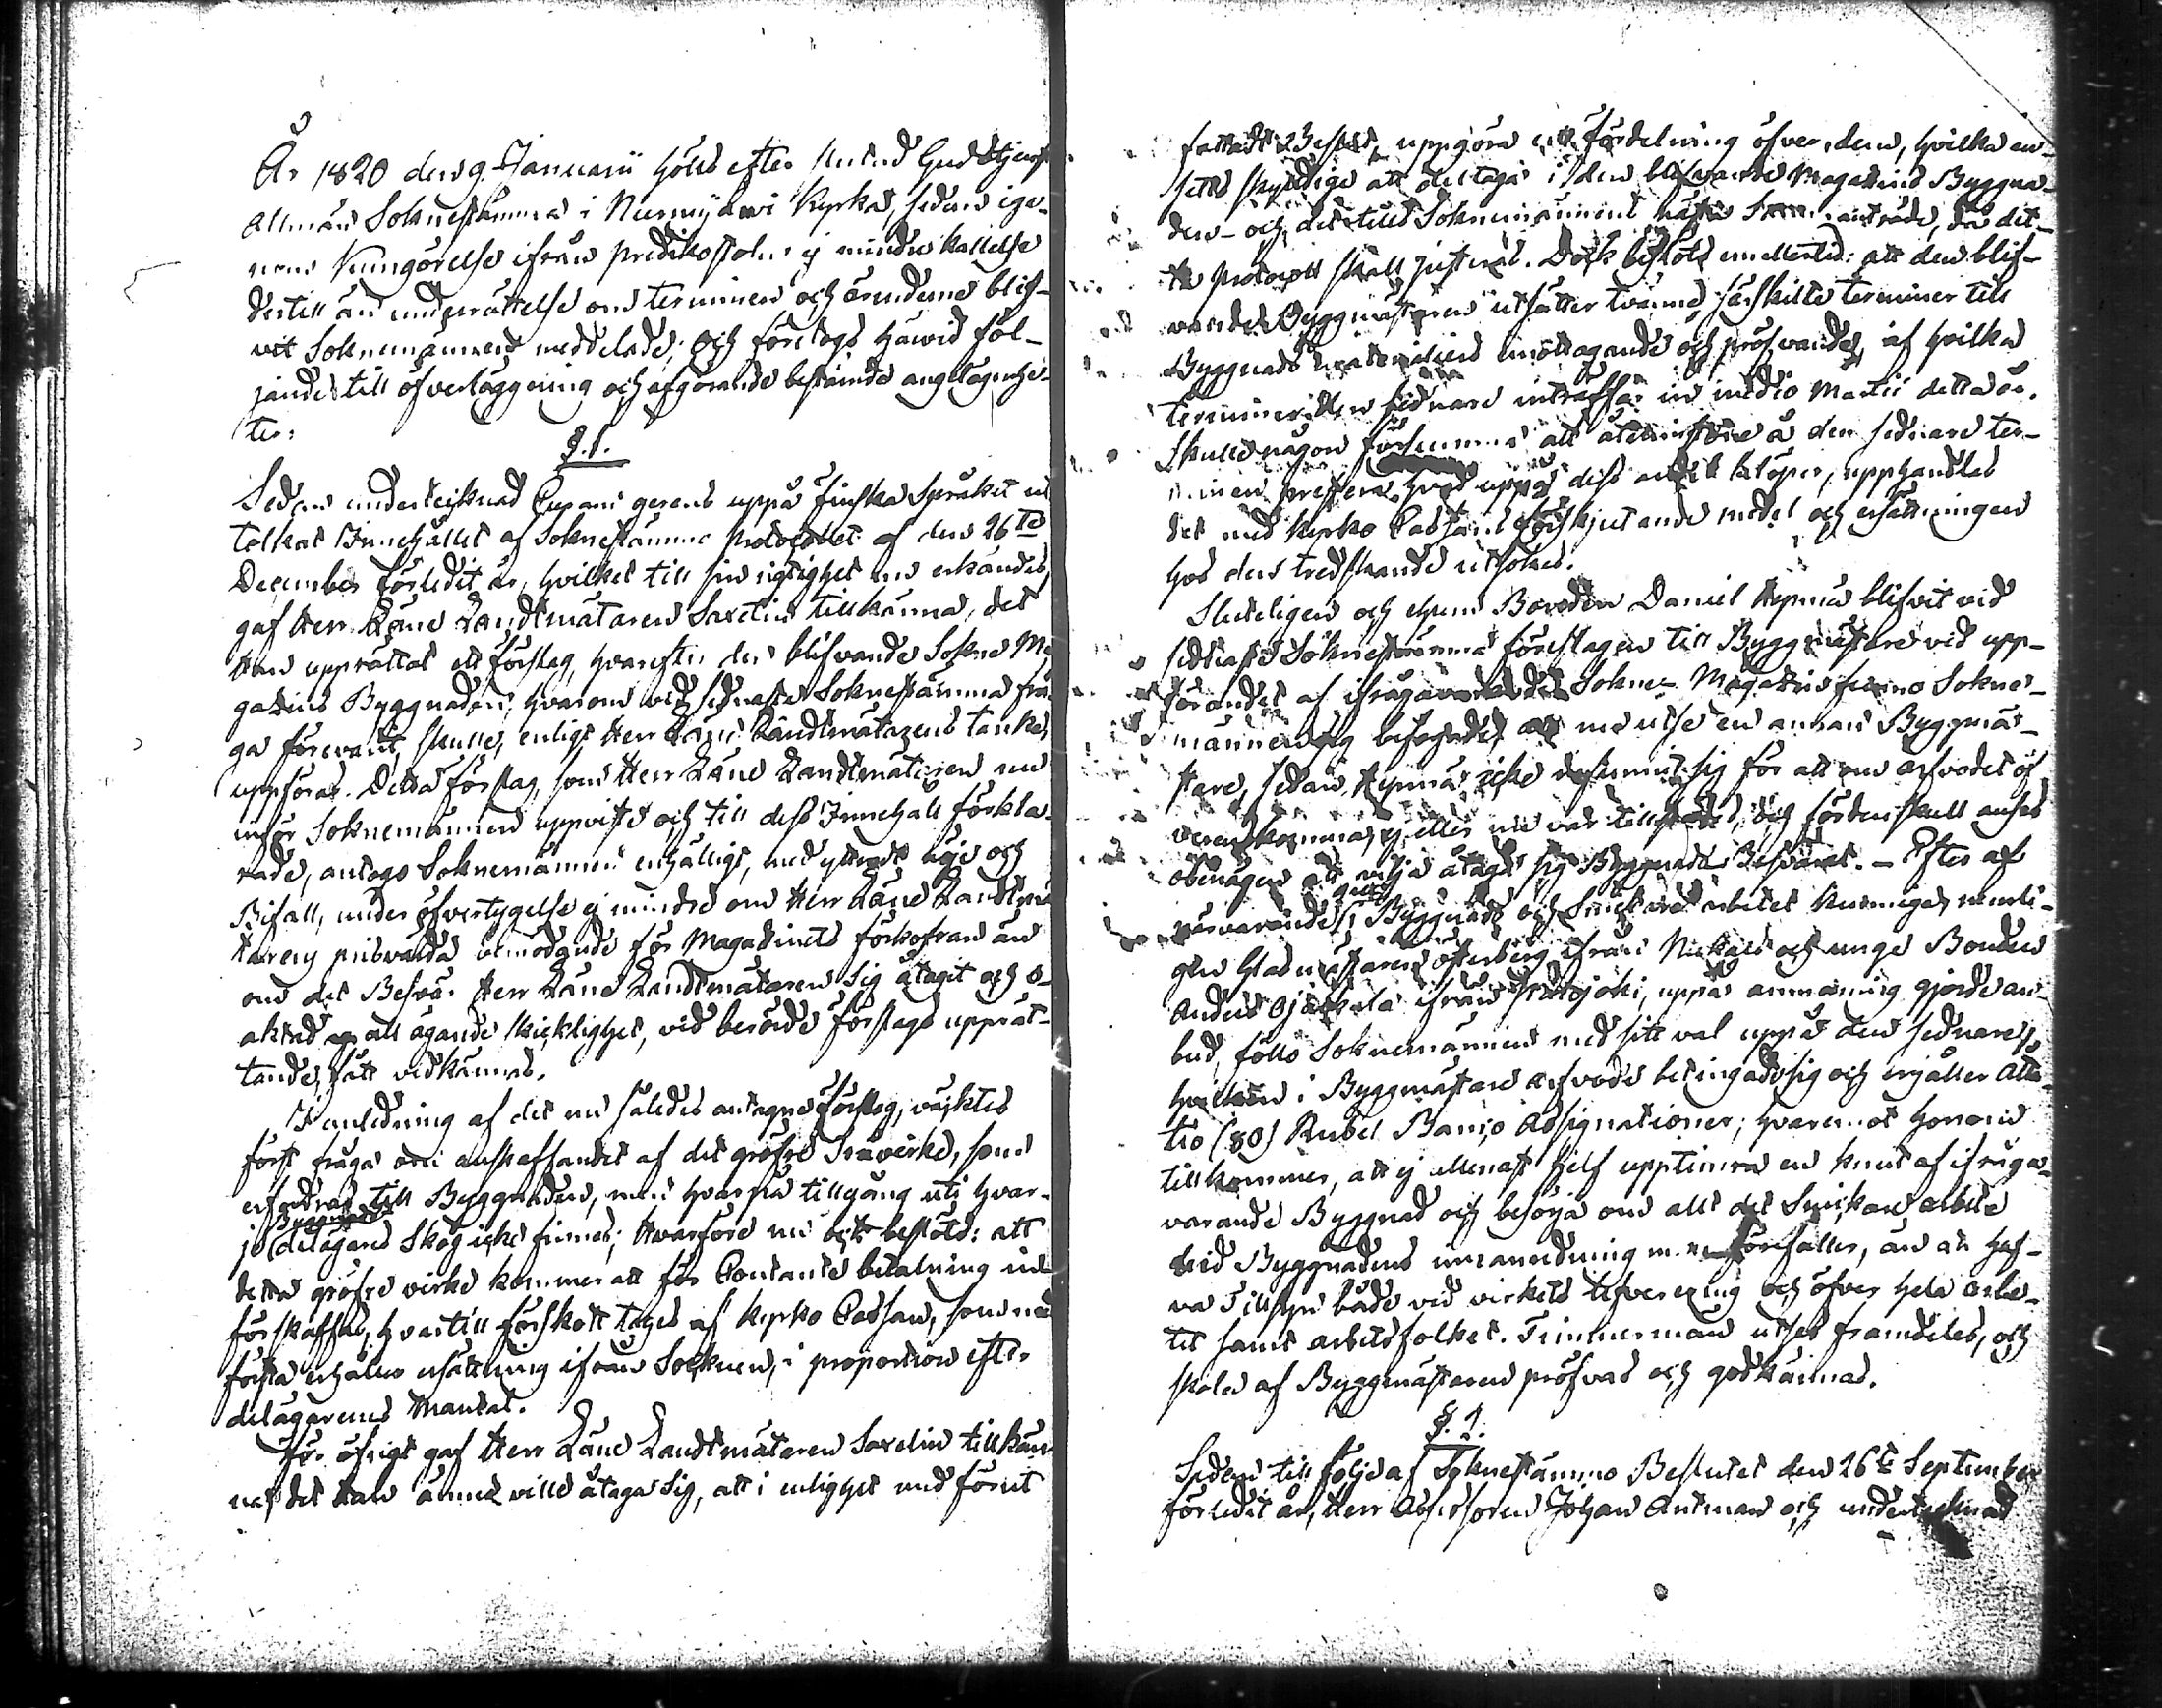 År 1820 den 9. Januarii hölls efter slutad Gudstjenst
allmän Soknestämma i Nurmijärvi Kyrka, sedan ige-
nom Kungörelse ifrån predikostolen ej mindre kallelse
dertill än underrättelse om terminen och ärenderne blif-
vit Soknemännen meddelade; och företogs härvid föl-
jande till öfverläggning och afgörande bestämda angelägenhe-
ter:
§. 1.
Sedan undertecknad Curam gerens uppå finska Språket ut
tolkat Innehållet af Soknestämmo Protocollet af den 26te
December förledit år, hvilket till sin riktighet nu erkändes,
gaf Herr Läne Landtmätaren Saxelin tillkänna, det
Han upprättat ett förslag, hvarefter den blifvande Sokne Ma
gazins Byggnaden, hvarom vid sednaste Soknestämma frå
ga förevarit, skulle, enligt Herr Läne Landtmätarens tanke,
uppföras. Detta förslag, som Herr Läne Landtmätaren nu
inför Soknemännen uppviste och till dess Innehåll förkla-
rade, antogs Soknemännen enhälligt, med yttradt nöje och
Bifall, under öfvertygelse ej mindre om Herr Läne Landtmä
tarens prisvärda bemödande för Magazinets förkofran än
om det Besvär Herr Läne Landtmätaren sig åtagit och o-
aktad all ägande skicklighet, vid berörde förslags upprät-
tande, fått vidkännas.
I anledning af det nu således antagne förslag, väcktes
först fråga om anskaffandet af det gröfre Trävirke, som
erfordras till Byggnaden, men hvarpå tillgång uti hvar-
je Byggnads delägares Skog icke finnes; Hvarföre nu beslöts: att
detta gröfre virke kommer att för Contante betalning
förskaffas, hvartill förskott tages af Kyrko Cassan, som med
första erhåller ersättning ifrån Socknen, i proportion efter
delägarenes Mantal.
För öfrigt gaf Herr Läne Landtmätaren Saxelin tillkän
na, det Han ännu ville åtaga Sig, att i enlighet med förut
fattadt Beslut, uppgöra ett fördelning öfver dem, hvilka an-
setts skyldige att deltaga i den blifvande Magazins Byggna-
den – och det till Soknemännens nästa Sammanträde, då det-
ta Protocoll skall justeras. Dock beslöts emellertid: att den blif-
vande Byggmästaren utsätter tvänne särskilte terminer till
Byggnads materialiers emottagande och pröfvande, af hvilka
terminer den sednare inträffar in medio Martii detta år.
Skulle någon försumma att åter infinna å den sednare ter-
minen prestera hvad uppå dess andel belöper, upphandles
det med Kyrko Cassans förskjutande medel och ersättningen
hos den tredskande utsökes.
Sluteligen och ehuru Bonden Daniel Heimä blifvit vid
sednaste Soknestämma föreslagen till Byggmästare vid upp-
förandet af ifrågavarande Sokne-Magazin funno Sokne-
männen sig befogade att nu utse en annan Byggmä-
stare, sedan Heimä icke infunnit sig för att om arfvodet öf-
verenskomma, ej eller nu var tillstädes, och fördenskull anses
obenägen att vilja åtaga sig Byggnads Besväret. – Efter af
närvarande, uti Byggnads och Snickare arbetet kunnige, nemli-
gen Glasmästaren Österberg ifrån Nukari och unge Bonden
Anders Ojakkala ifrån Palojoki, uppå anmaning gjorde an-
bud, föllo Soknemännen med sitt val uppå den sednare,
hvilken i Byggmästare arfvode betingade sig och erhåller Åtta-
tio (80) Rubel Banco Assignationer; hvaremot honom
tillkommer, att ej allenast sjelf upptimra en knut af ifråga-
varande Byggnad och besörja om allt det Snickare arbete
vid Byggnadens inre inredning m. m. förefaller, än att haf-
va Tillsyn både vid virkets lefverering och öfver hela arbe-
tet samt arbetsfolket. Timmerman utses framdeles, och
skola af Byggmästaren pröfvas och godkännas.
§. 2.
Sedan till följe af Soknestämmo Beslutet den 26te September
förledit år, Herr Assessoren Johan Antman och undertecknad